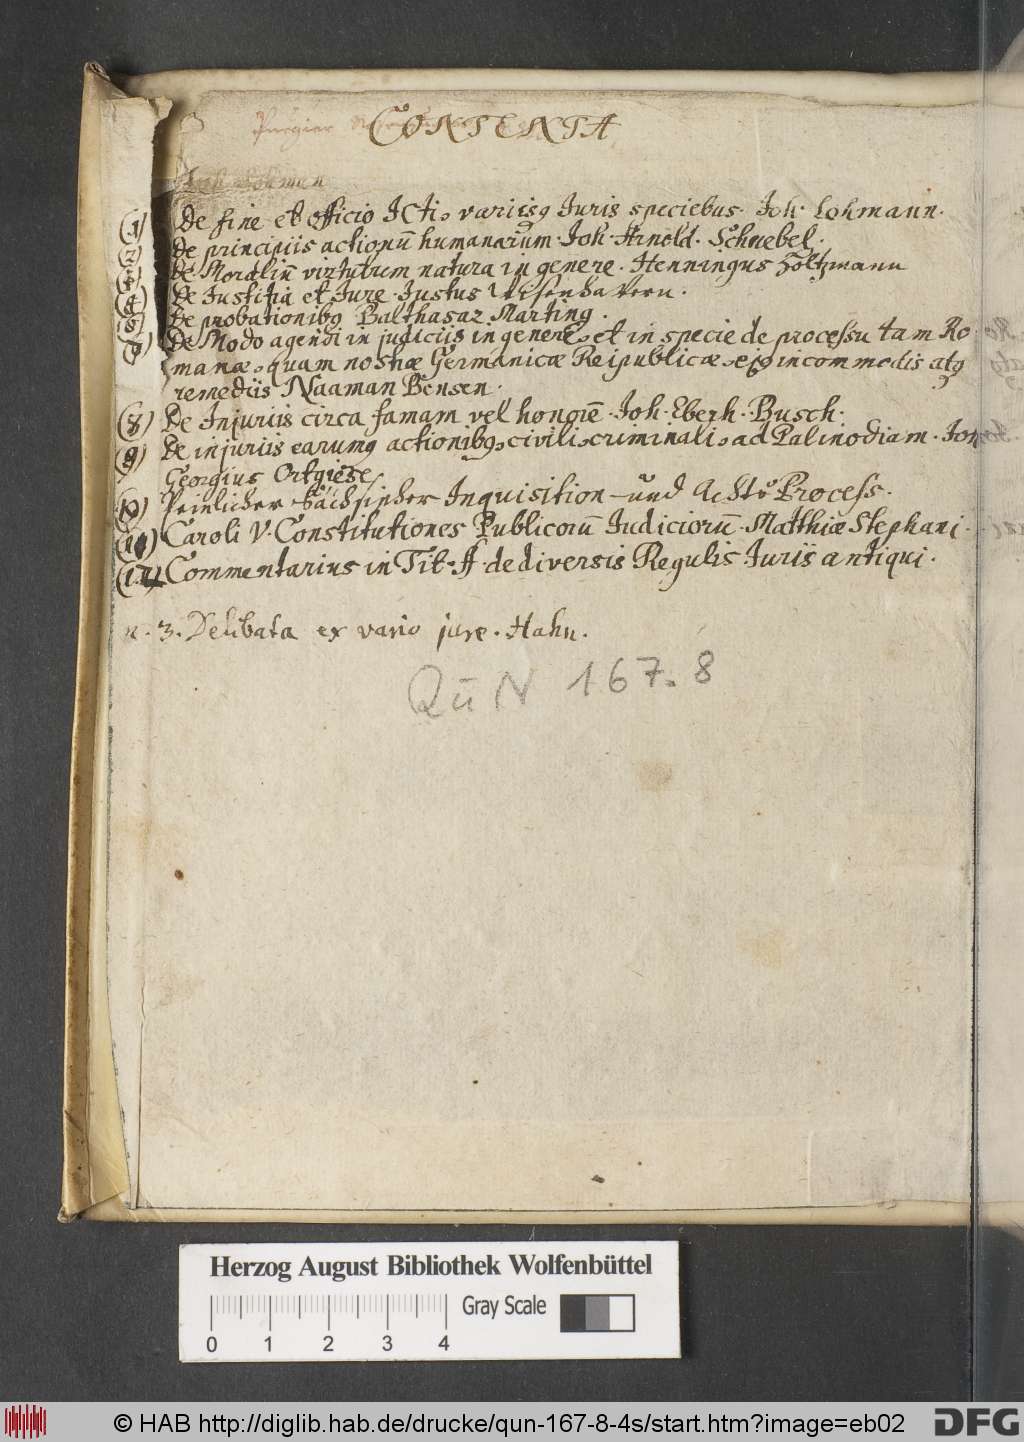 CONTENTA
(1) De fine et officio ICti, variisq Iuris speciebus. Joh. Lohmann.
(2) De principiis actionū humanarum. Joh. Arnold. Schnebel.
De Moraliū virtutum natura in genere. Henningus Holtzmann
De Iustitia et Iure. Justus
De probationibq Balthasar Marting.
De Modo agendi in judiciis in genere, et in specie de processu tam Ro
manæ, quam nostræ Germanicæ Reipublicæ, ejq incommodis atq
remediis Naaman Bensen.
(8) De Injuriis circa famam vel honorē. Joh. Eberh. Busch.
(9) De injuriis earumq actionibq, civili, criminali, ad Palinodiam. Joh
Georgius Ortgiese
(10) Peinlicher Sächsischer Inquisition- und Achts Process.
(11) Caroli V. Constitutiones Publicorū Iudiciorū. Matthiæ Stephani.
(12) Commentarius in Tit. ff. de diversis Regulis Iuris antiqui.
n. 3. Delibata ex vario jure. Hahn.
QuN 167.8
Herzog August Bibliothek Wolfenbüttel
Gray Scale
0 1 2 3 4
© HAB http://diglib.hab.de/drucke/qun-167-8-4s/start.htm?image=eb02
DFG